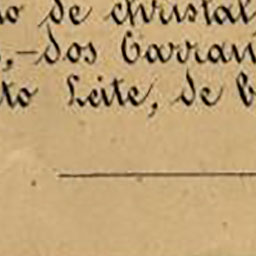 o de christal
,—dos Barran
to Leite, de b